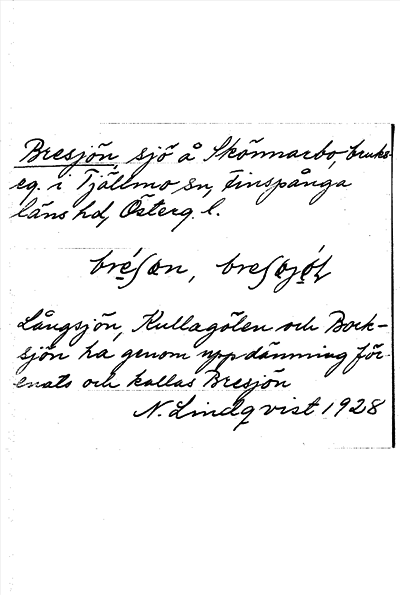 Bresjön, sjö å Skönnarbo, bruks-
eg. i Tjällmo sn, Finspånga
läns hd, Österg. l.
Långsjön, Kullagölen och Bock-
sjön ha genom uppdämning för-
enats och kallas Bresjön
N. Lindqvist 1928